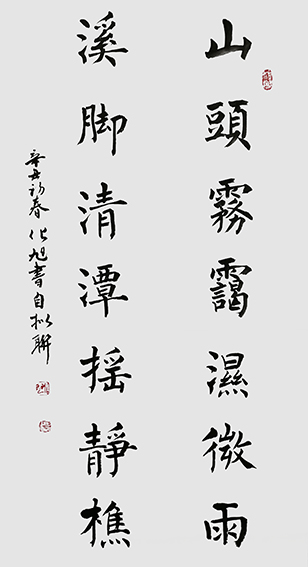 山頭霧靄濕微雨
溪脚清潭摇靜樵
辛丑初春化旭書自拟聯